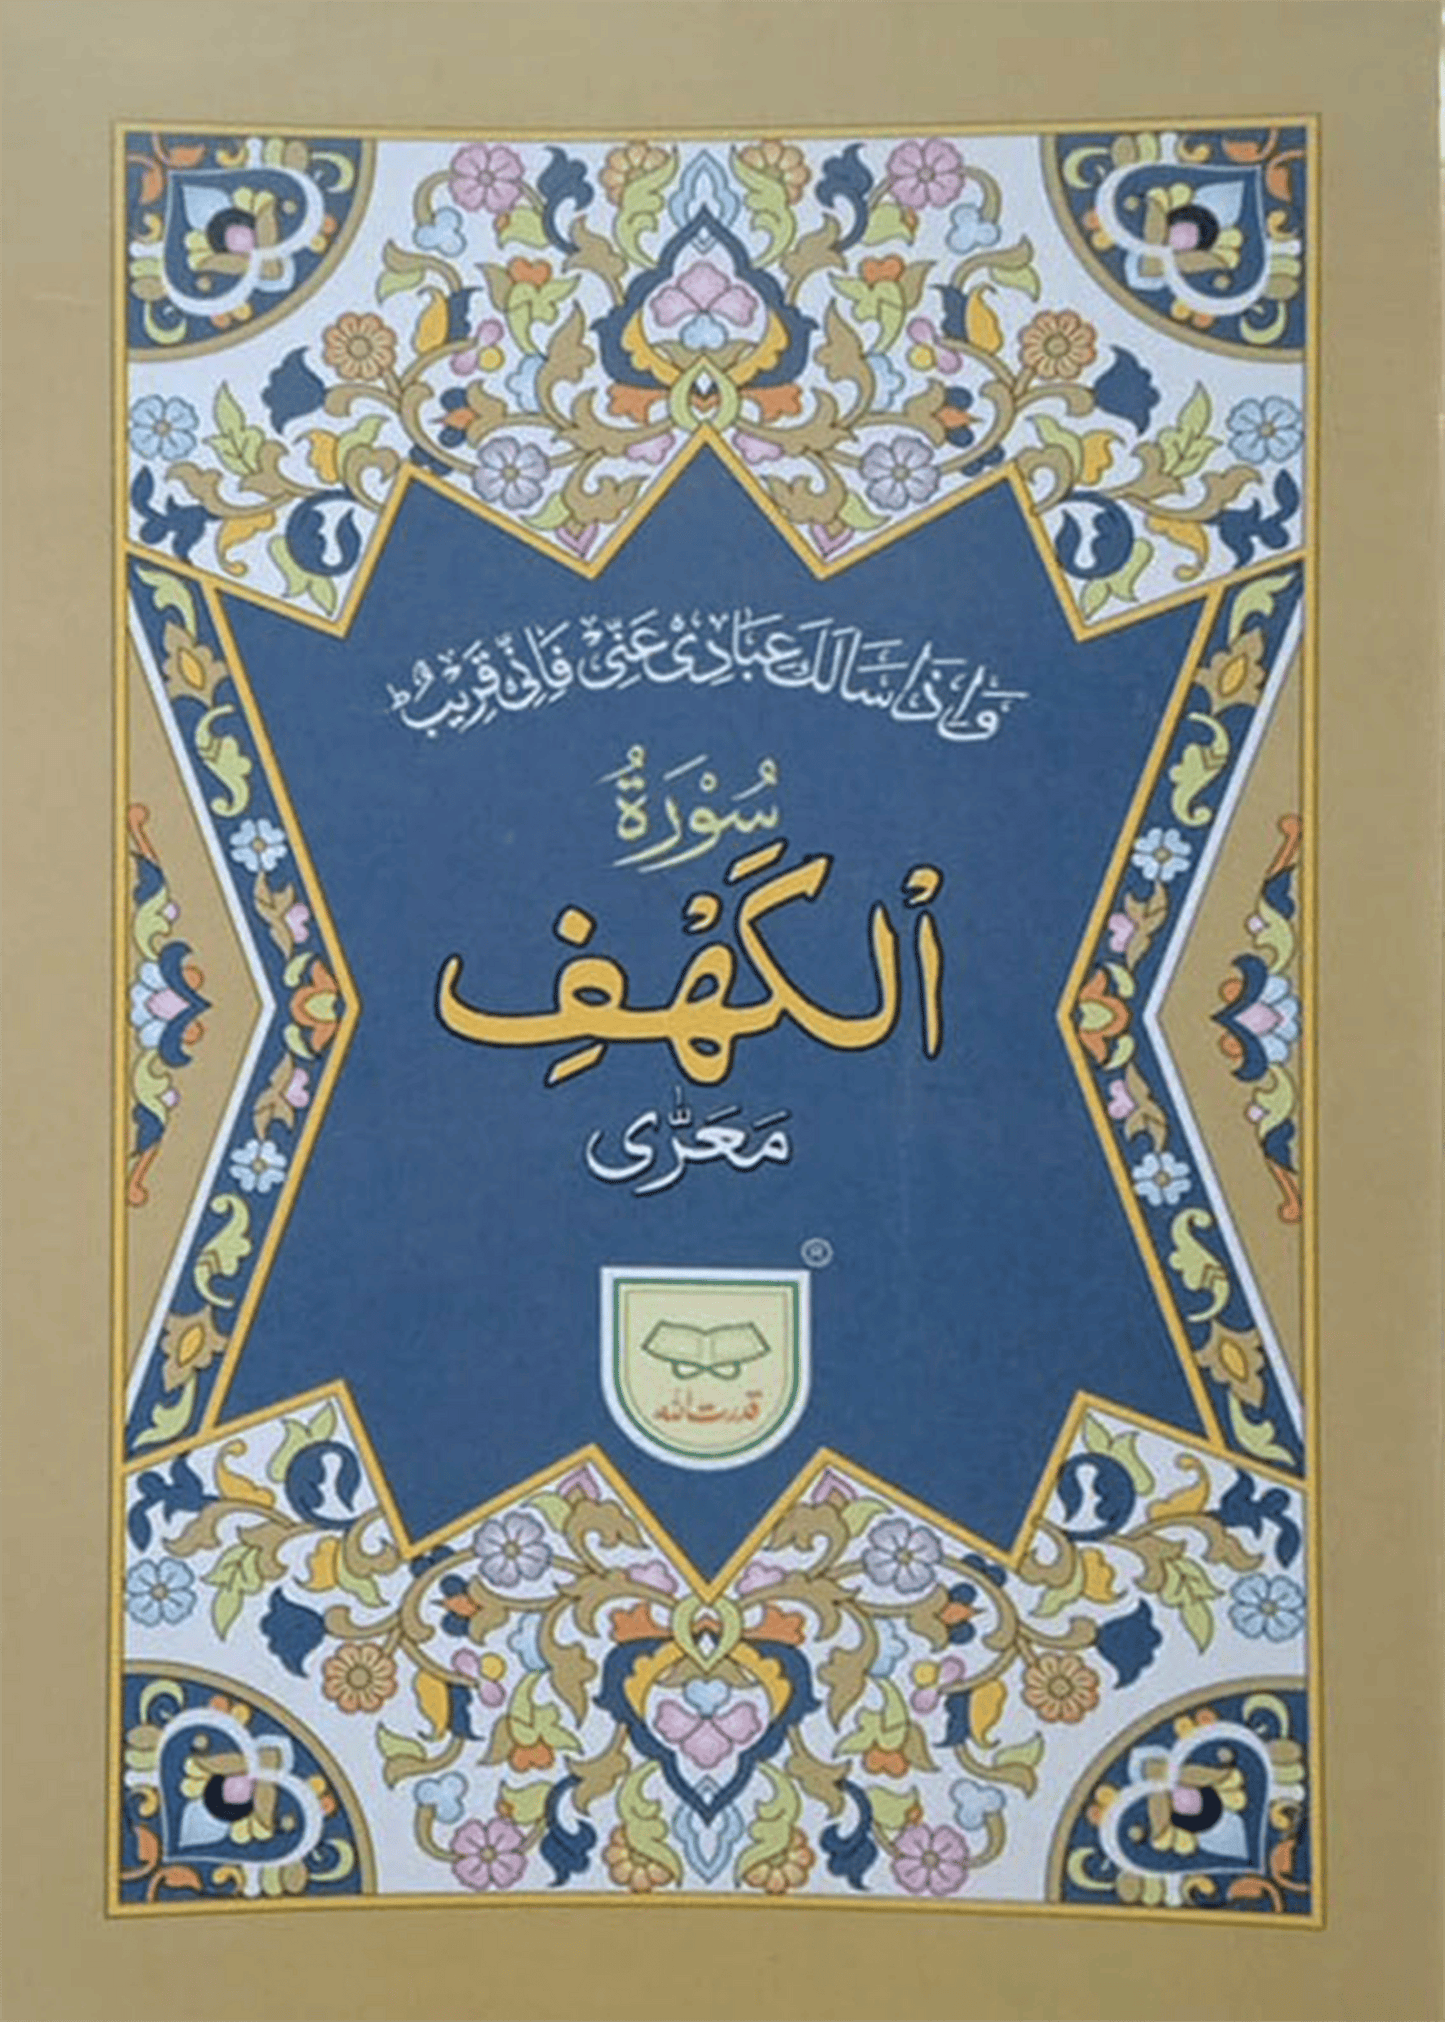 وَاِذَا سَاَلَكَ عِبَادِیْ عَنِّیْ فَاِنِّیْ قَرِیْبٌ ؕ
سُوْرَةُ
اَلکَهْفِ
مَعَرّٰی
®
قدرت اللہ